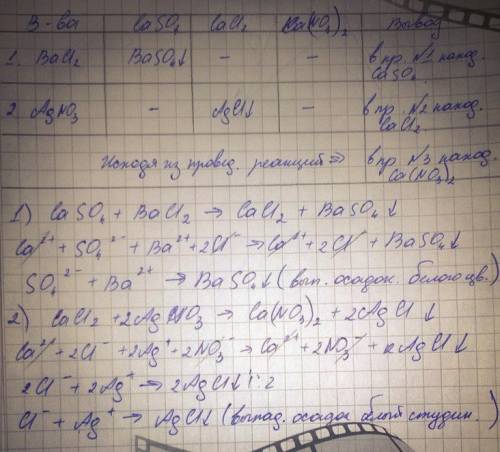 В-ва CaSO₄ CaCl₂ Ca(NO₃)₂ Вывод
1. BaCl₂ BaSO₄↓ – – в пр. №1 наход. CaSO₄
2. AgNO₃ – AgCl↓ – в пр. №2 наход. CaCl₂
Исходя из провед. реакций ⇒ в пр. №3 наход. Ca(NO₃)₂
1) CaSO₄ + BaCl₂ → CaCl₂ + BaSO₄↓
Ca²⁺ + SO₄²⁻ + Ba²⁺ + 2Cl⁻ → Ca²⁺ + 2Cl⁻ + BaSO₄↓
SO₄²⁻ + Ba²⁺ → BaSO₄↓ (вып. осадок белого цв.)
2) CaCl₂ + 2AgNO₃ → Ca(NO₃)₂ + 2AgCl↓
Ca²⁺ + 2Cl⁻ + 2Ag⁺ + 2NO₃⁻ → Ca²⁺ + 2NO₃⁻ + 2AgCl↓
2Cl⁻ + 2Ag⁺ → 2AgCl↓ | : 2
Cl⁻ + Ag⁺ → AgCl↓ (выпад. осадок белый студен.)